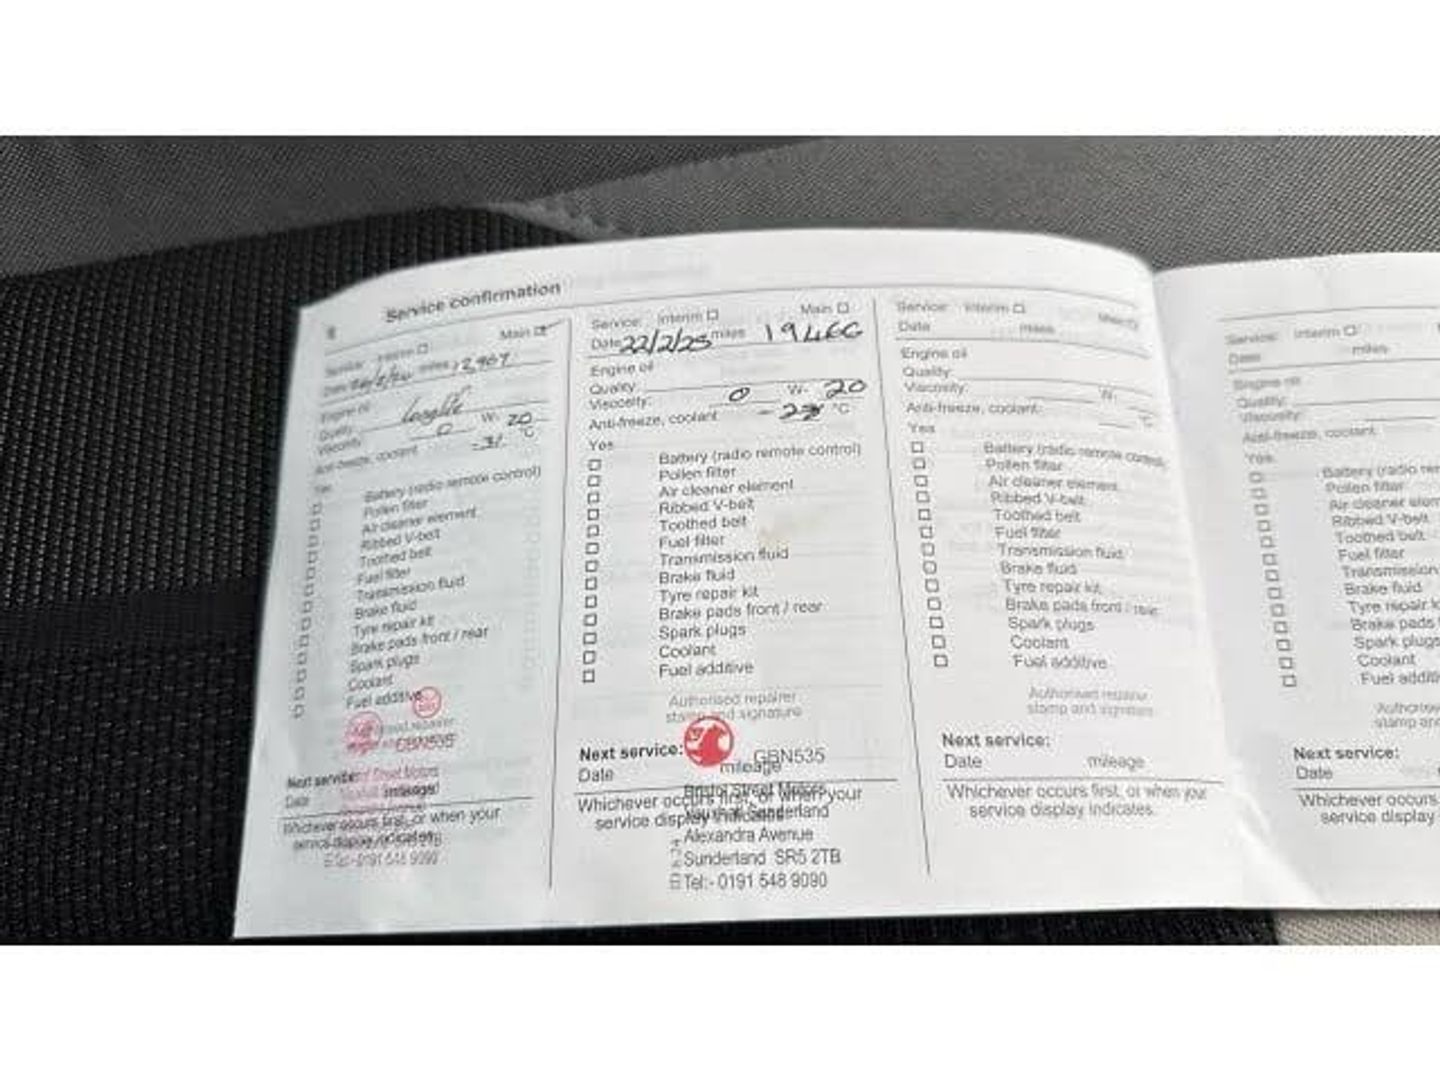 Service confirmation
Service: Interim Main
miles 12,967
Engine oil
Quality: longlife
Viscosity: 0 W- 20
Anti-freeze, coolant -31 °C
Yes
Battery (radio remote control)
Pollen filter
Air cleaner element
Ribbed V-belt
Toothed belt
Fuel filter
Transmission fluid
Brake fluid
Tyre repair kit
Brake pads front / rear
Spark plugs
Coolant
Fuel additive
GBN535
Next service:
Date mileage
Whichever occurs first, or when your
service display indicates.
Tel:- 0191 548 9090
Service: Interim Main
Date 22/2/25 miles 19466
Engine oil
Quality:
Viscosity: 0 W- 20
Anti-freeze, coolant °C
Yes
Battery (radio remote control)
Pollen filter
Air cleaner element
Ribbed V-belt
Toothed belt
Fuel filter
Transmission fluid
Brake fluid
Tyre repair kit
Brake pads front / rear
Spark plugs
Coolant
Fuel additive
Authorised repairer
stamp and signature
Next service: GBN535
Date mileage
Bristol Street Motors
Whichever occurs first, or when your
Vauxhall Sunderland
service display indicates.
Alexandra Avenue
Sunderland SR5 2TB
Tel:- 0191 548 9090
Service: Interim Main
Date miles
Engine oil
Quality:
Viscosity: W-
Anti-freeze, coolant: °C
Yes
Battery (radio remote control)
Pollen filter
Air cleaner element
Ribbed V-belt
Toothed belt
Fuel filter
Transmission fluid
Brake fluid
Tyre repair kit
Brake pads front / rear
Spark plugs
Coolant
Fuel additive
Authorised repairer
stamp and signature
Next service:
Date mileage
Whichever occurs first, or when your
service display indicates.
Service: Interim
Date miles
Engine oil
Quality:
Viscosity:
Anti-freeze, coolant
Yes
Battery (radio
Pollen filter
Air cleaner
Ribbed V-belt
Toothed belt
Fuel filter
Transmission
Brake fluid
Tyre repair
Brake pads
Spark plugs
Coolant
Fuel
stamp
Next service:
Date
Whichever occurs
service display